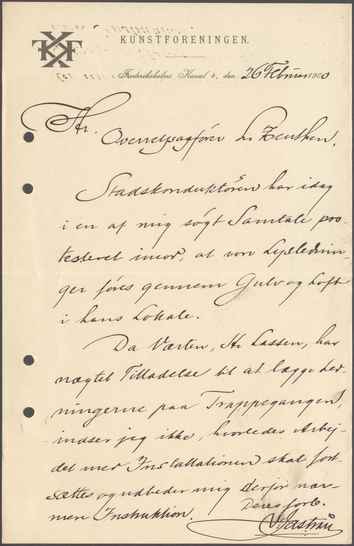 KUNSTFORENINGEN.
Frederiksholms Kanal 4, den 26 Februar 1900
Hr. Overretssagfører L. Zeuthen.
Stadskonduktøren har idag
i en af mig søgt Samtale pro-
testeret imod, at vore Lyslednin-
ger føres gennem Gulv og Loft
i hans Lokale.
Da Værten, Hr. Lassen, har
nægtet Tilladelse til at lægge Led-
ningerne paa Trappegangen,
indser jeg ikke, hvorledes Arbej-
det med Installationen skal fort-
sættes og udbeder mig derfor nær-
mere Instruktion.
Deres forb.